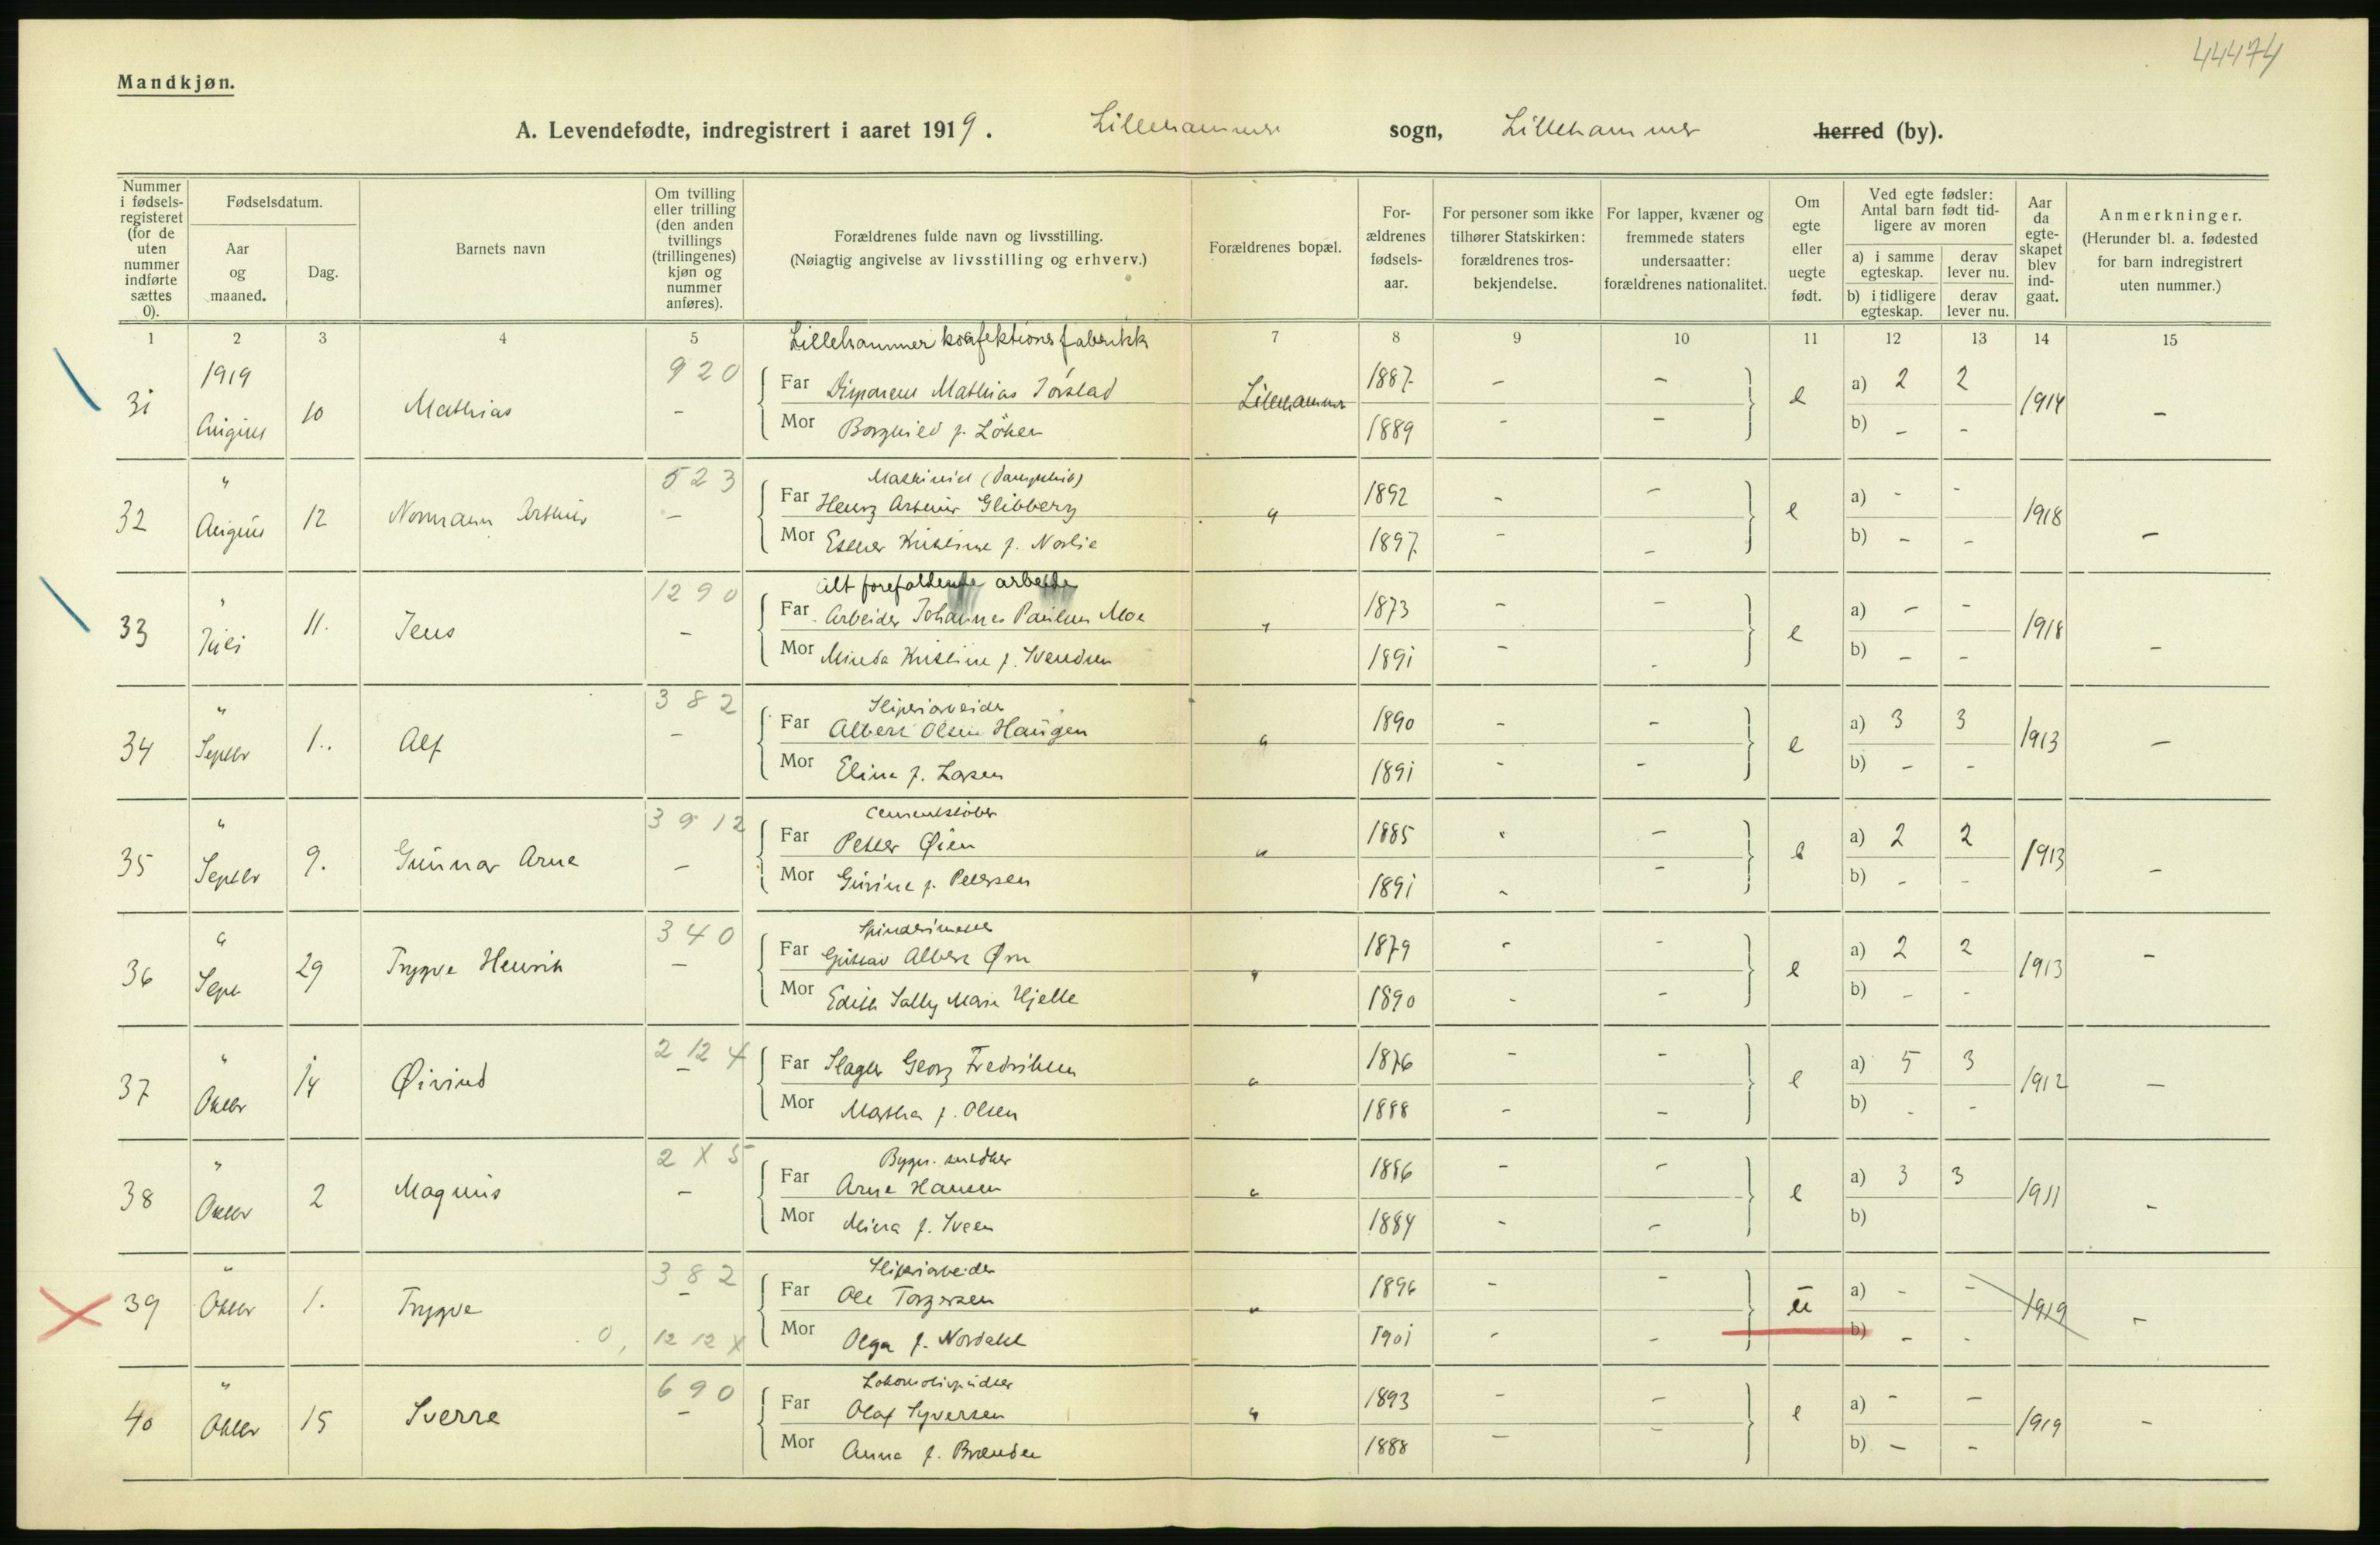 44474
Mandkjøn.
A. Levendefødte, indregistrert i aaret 1919. Lillehammer sogn, Lillehammer herred (by).
Nummer i fødselsregisteret (for de uten nummer indførte sættes 0).
Fødselsdatum.
Aar og maaned.
Dag.
Barnets navn
Om tvilling eller trilling (den anden tvillings (trillingenes) kjøn og nummer anføres).
Forældrenes fulde navn og livsstilling.
(Nøiagtig angivelse av livsstilling og erhverv.)
Forældrenes bopæl.
Forældrenes fødselsaar.
For personer som ikke tilhører Statskirken: forældrenes trosbekjendelse.
For lapper, kvæner og fremmede staters undersaatter: forældrenes nationalitet.
Om egte eller uegte født.
Ved egte fødsler: Antal barn født tidligere av moren
a) i samme egteskap. derav lever nu.
b) i tidligere egteskap. derav lever nu.
Aar da egteskapet blev indgaat.
Anmerkninger.
(Herunder bl. a. fødested for barn indregistrert uten nummer.)
1 2 3 4 5 7 8 9 10 11 12 13 14 15
Lillehammer konfektionsfabrikk
31 1919 August 10 Mathias 920 -
Far Disponent Mathias Torstad Lillehammer 1887 - - e a) 2 2 1914 -
Mor Borghild f. Löken 1889 - - b) - -
32 " August 12 Normann Arthur 523 -
Maskinist
Far Henry Arthur Glibberg " 1892 - - e a) - - 1918 -
Mor Esther Kristine f. Norlie 1897 - - b) - -
33 " Juli 11. Jens 1290 -
Alt forefaldende arbeide
Far Arbeider Johannes Paulsen Moe " 1873 - - e a) - - 1918 -
Mor Minda Kristine f. Svendsen 1891 - - b) - -
34 " Septbr 1. Alf 382 -
Sliperiarbeider
Far Albert Olsen Haugen " 1890 - - e a) 3 3 1913 -
Mor Eline f. Larsen 1891 - - b) - -
35 " Septbr 9. Gunnar Arne 3912 -
Cementstøber
Far Petter Øien " 1885 " - e a) 2 2 1913 -
Mor Gurine f. Petersen 1891 - - b) - -
36 " Sept 29 Trygve Henrik 340 -
Spinderimester
Far Gustav Albert Ørn " 1879 - - e a) 2 2 1913 -
Mor Edith Sally Marie Hjelle 1890 - - b) - -
37 " Oktbr 14 Øivind 2 12 4 -
Far Slagter Georg Fredriksen " 1876 - - e a) 5 3 1912 -
Mor Martha f. Olsen 1888 - - b) - -
38 " Oktbr 2 Magnus 2 X 5 -
Bygn. snedker
Far Arne Hansen " 1886 - - e a) 3 3 1911 -
Mor Mina f. Sveen 1884 - - b)
39 " Oktbr 1. Trygve 382 -
Sliperiarbeider
Far Ole Torgersen " 1896 - - u a) - - 1919 -
0, 12 12 X Mor Olga f. Nordahl 1901 - - b) - -
40 " Oktbr 15 Sverre 690 -
Lokomotivpudser
Far Olaf Syversen " 1893 - - e a) - - 1919 -
Mor Anna f. Brenden 1888 - - b) - -